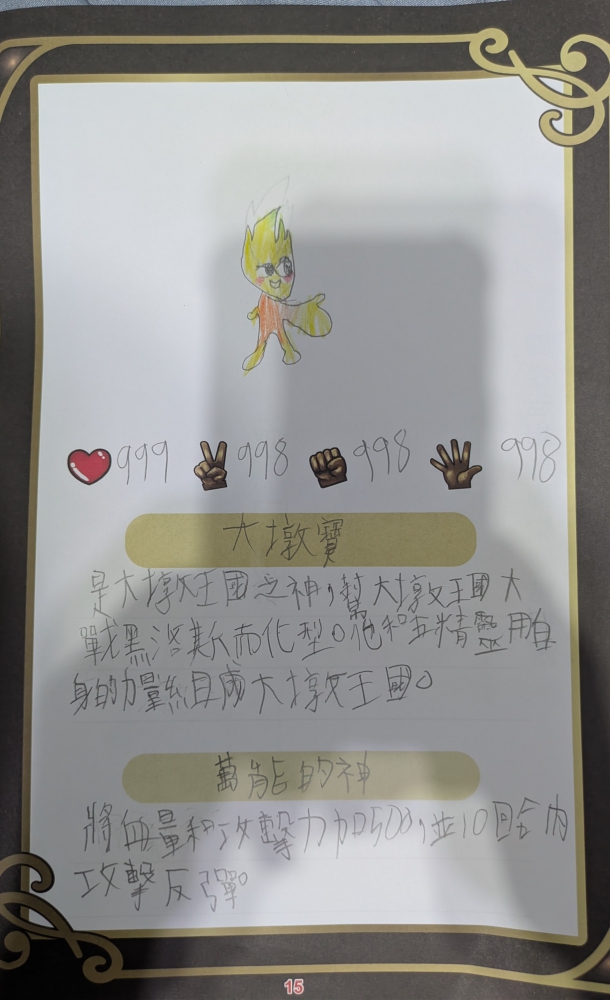 999 998 998 998
大墩寶
是大墩王國之神,幫大墩王國大
戰黑洛斯而化型。他和五精靈用自
身的力量組成大墩王國。
萬能的神
將血量和攻擊力加500,並10回合內
攻擊反彈。
15